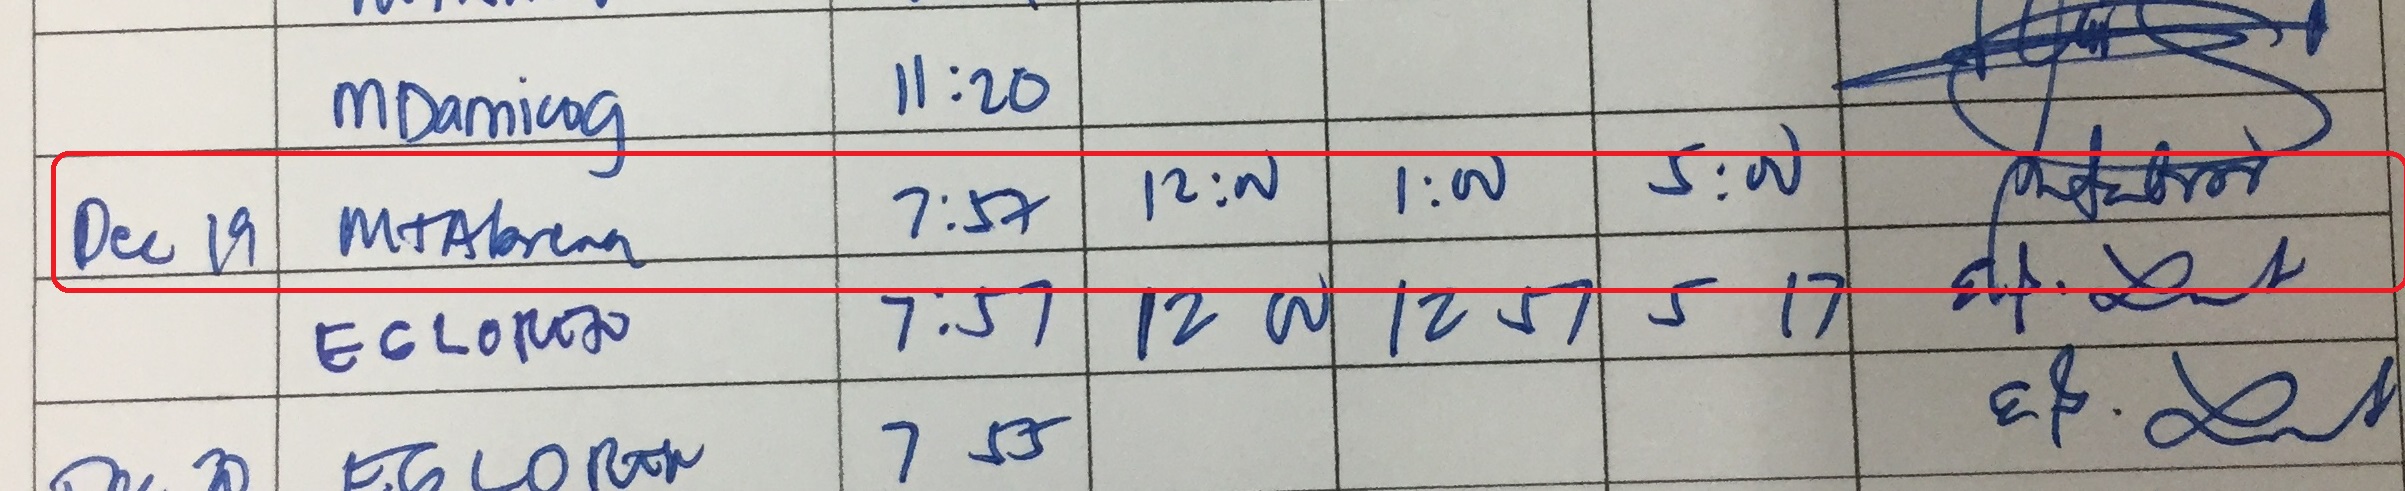 MDamicog 11:20
Dec 19 MTAbrena 7:57 12:00 1:00 5:00
EGLOREN 7:57 12 00 12 57 5 17
Dec 20 EGLOREN 7 55